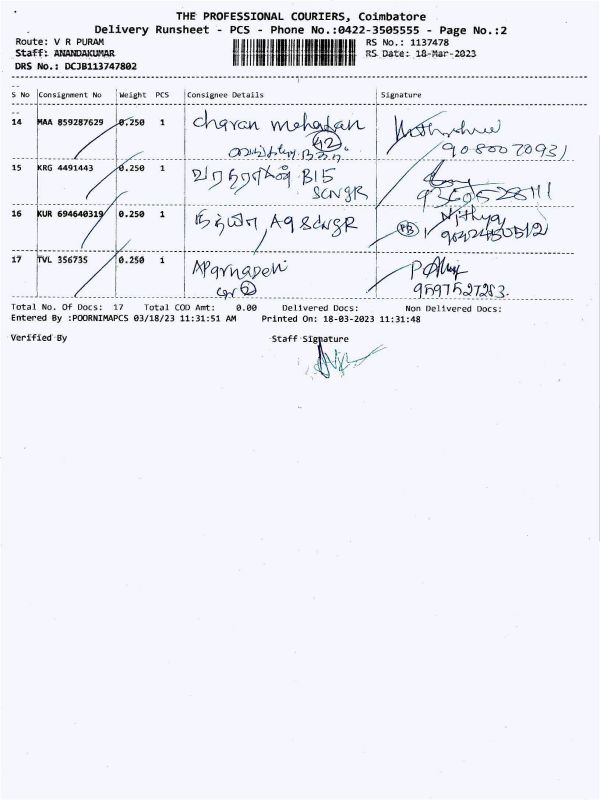 THE PROFESSIONAL COURIERS, Coimbatore
Delivery Runsheet - PCS - Phone No.:0422-3505555 - Page No.:2
Route: V R PURAM RS No.: 1137478
Staff: ANANDAKUMAR RS Date: 18-Mar-2023
DRS No.: DCJB113747802
S No Consignment No Weight PCS Consignee Details Signature
14 MAA 859287629 0.250 1 charan
42
9080070931
15 KRG 4491443 0.250 1 B15
SCNGR
16 KUR 694640319 0.250 1 A9 SCNGR Nithya
17 TVL 356735 0.250 1
9597527283.
Total No. Of Docs: 17 Total COD Amt: 0.00 Delivered Docs: Non Delivered Docs:
Entered By :POORNIMAPCS 03/18/23 11:31:51 AM Printed On: 18-03-2023 11:31:48
Verified By Staff Signature